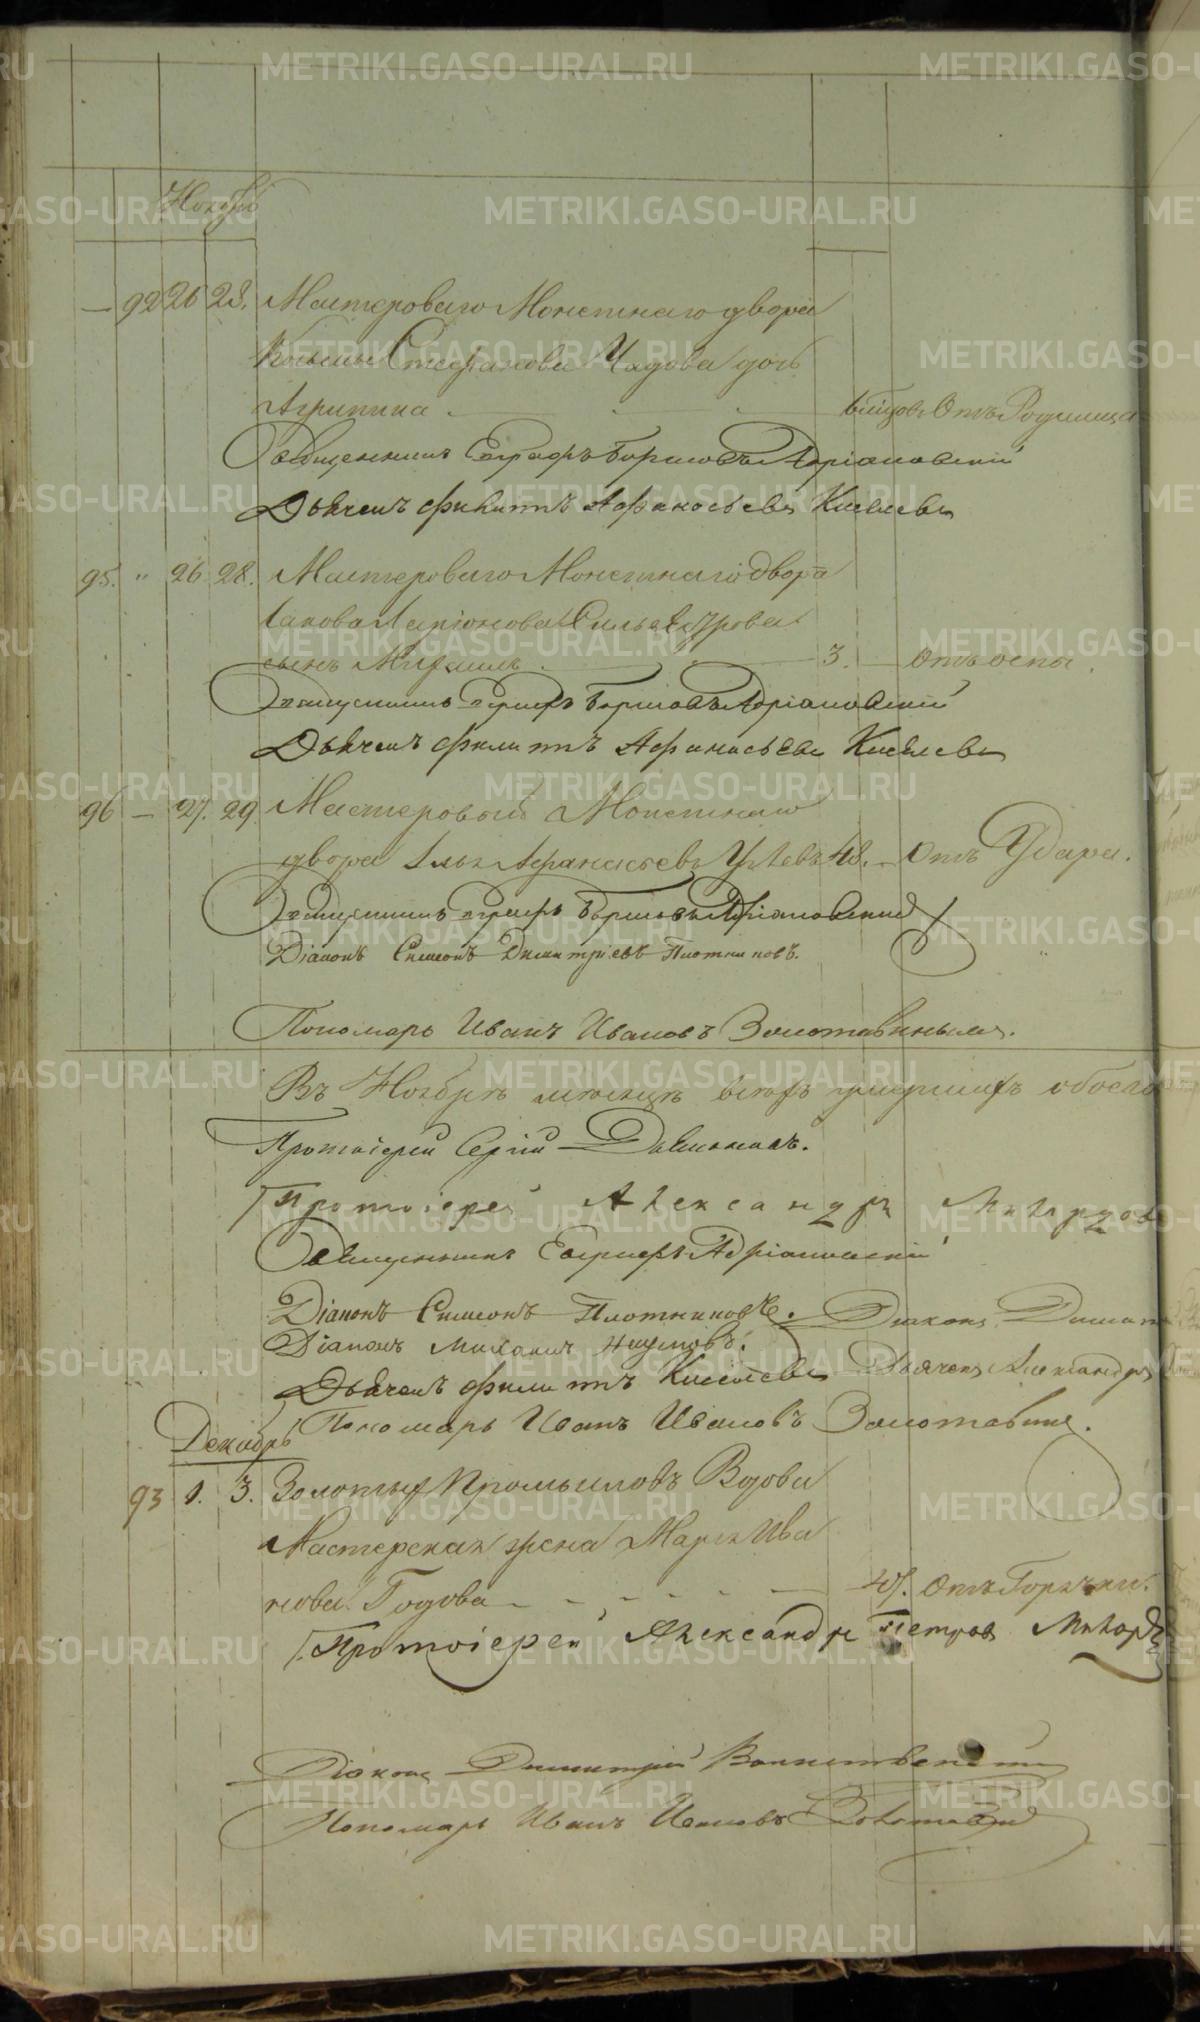 Ноябрь
— 92 26 28. Мастероваго Монетнаго двора
Козьмы Стефанова Чадова дочь
Агрипина Отъ Родимца
Священникъ Евграфъ Борисовъ Адріановскій
Дьячекъ Филиппъ Афанасьевъ Киселевъ
95. " 26 28. Мастероваго Монетнаго двора
Іакова Ларіонова
сынъ Михаилъ 3. Отъ оспы.
Священникъ Евграфъ Борисовъ Адріановскій
Дьячекъ Филиппъ Афанасьевъ Киселевъ
96 — 27. 29. Мастеровый Монетнаго
двора Илья Афанасьевъ 48. Отъ Удара.
Священникъ Евграфъ Борисовъ Адріановскій
Діаконъ Симеонъ Димитріевъ Плотниковъ.
Пономарь Иванъ Ивановъ Золотавинъ.
Въ Ноябрѣ мѣсяцѣ всѣхъ умершихъ обоего
Протоіерей Сергій
Протоіерей Александръ
Священникъ Евграфъ Адріановскій
Діаконъ Симеонъ Плотниковъ. Діаконъ
Діаконъ Михаилъ Наумовъ.
Дьячекъ Филиппъ Киселевъ Дьячекъ Александръ
Пономарь Иванъ Ивановъ Золотавинъ.
Декабрь
93 1. 3. Золотыхъ Промысловъ Вдова
Мастерская жена Марья Ива
нова Годова 45. Отъ Горячки.
Протоіерей Александръ Петровъ
Діаконъ Димитрій
Пономарь Иванъ Ивановъ Золотавинъ
METRIKI.GASO-URAL.RU